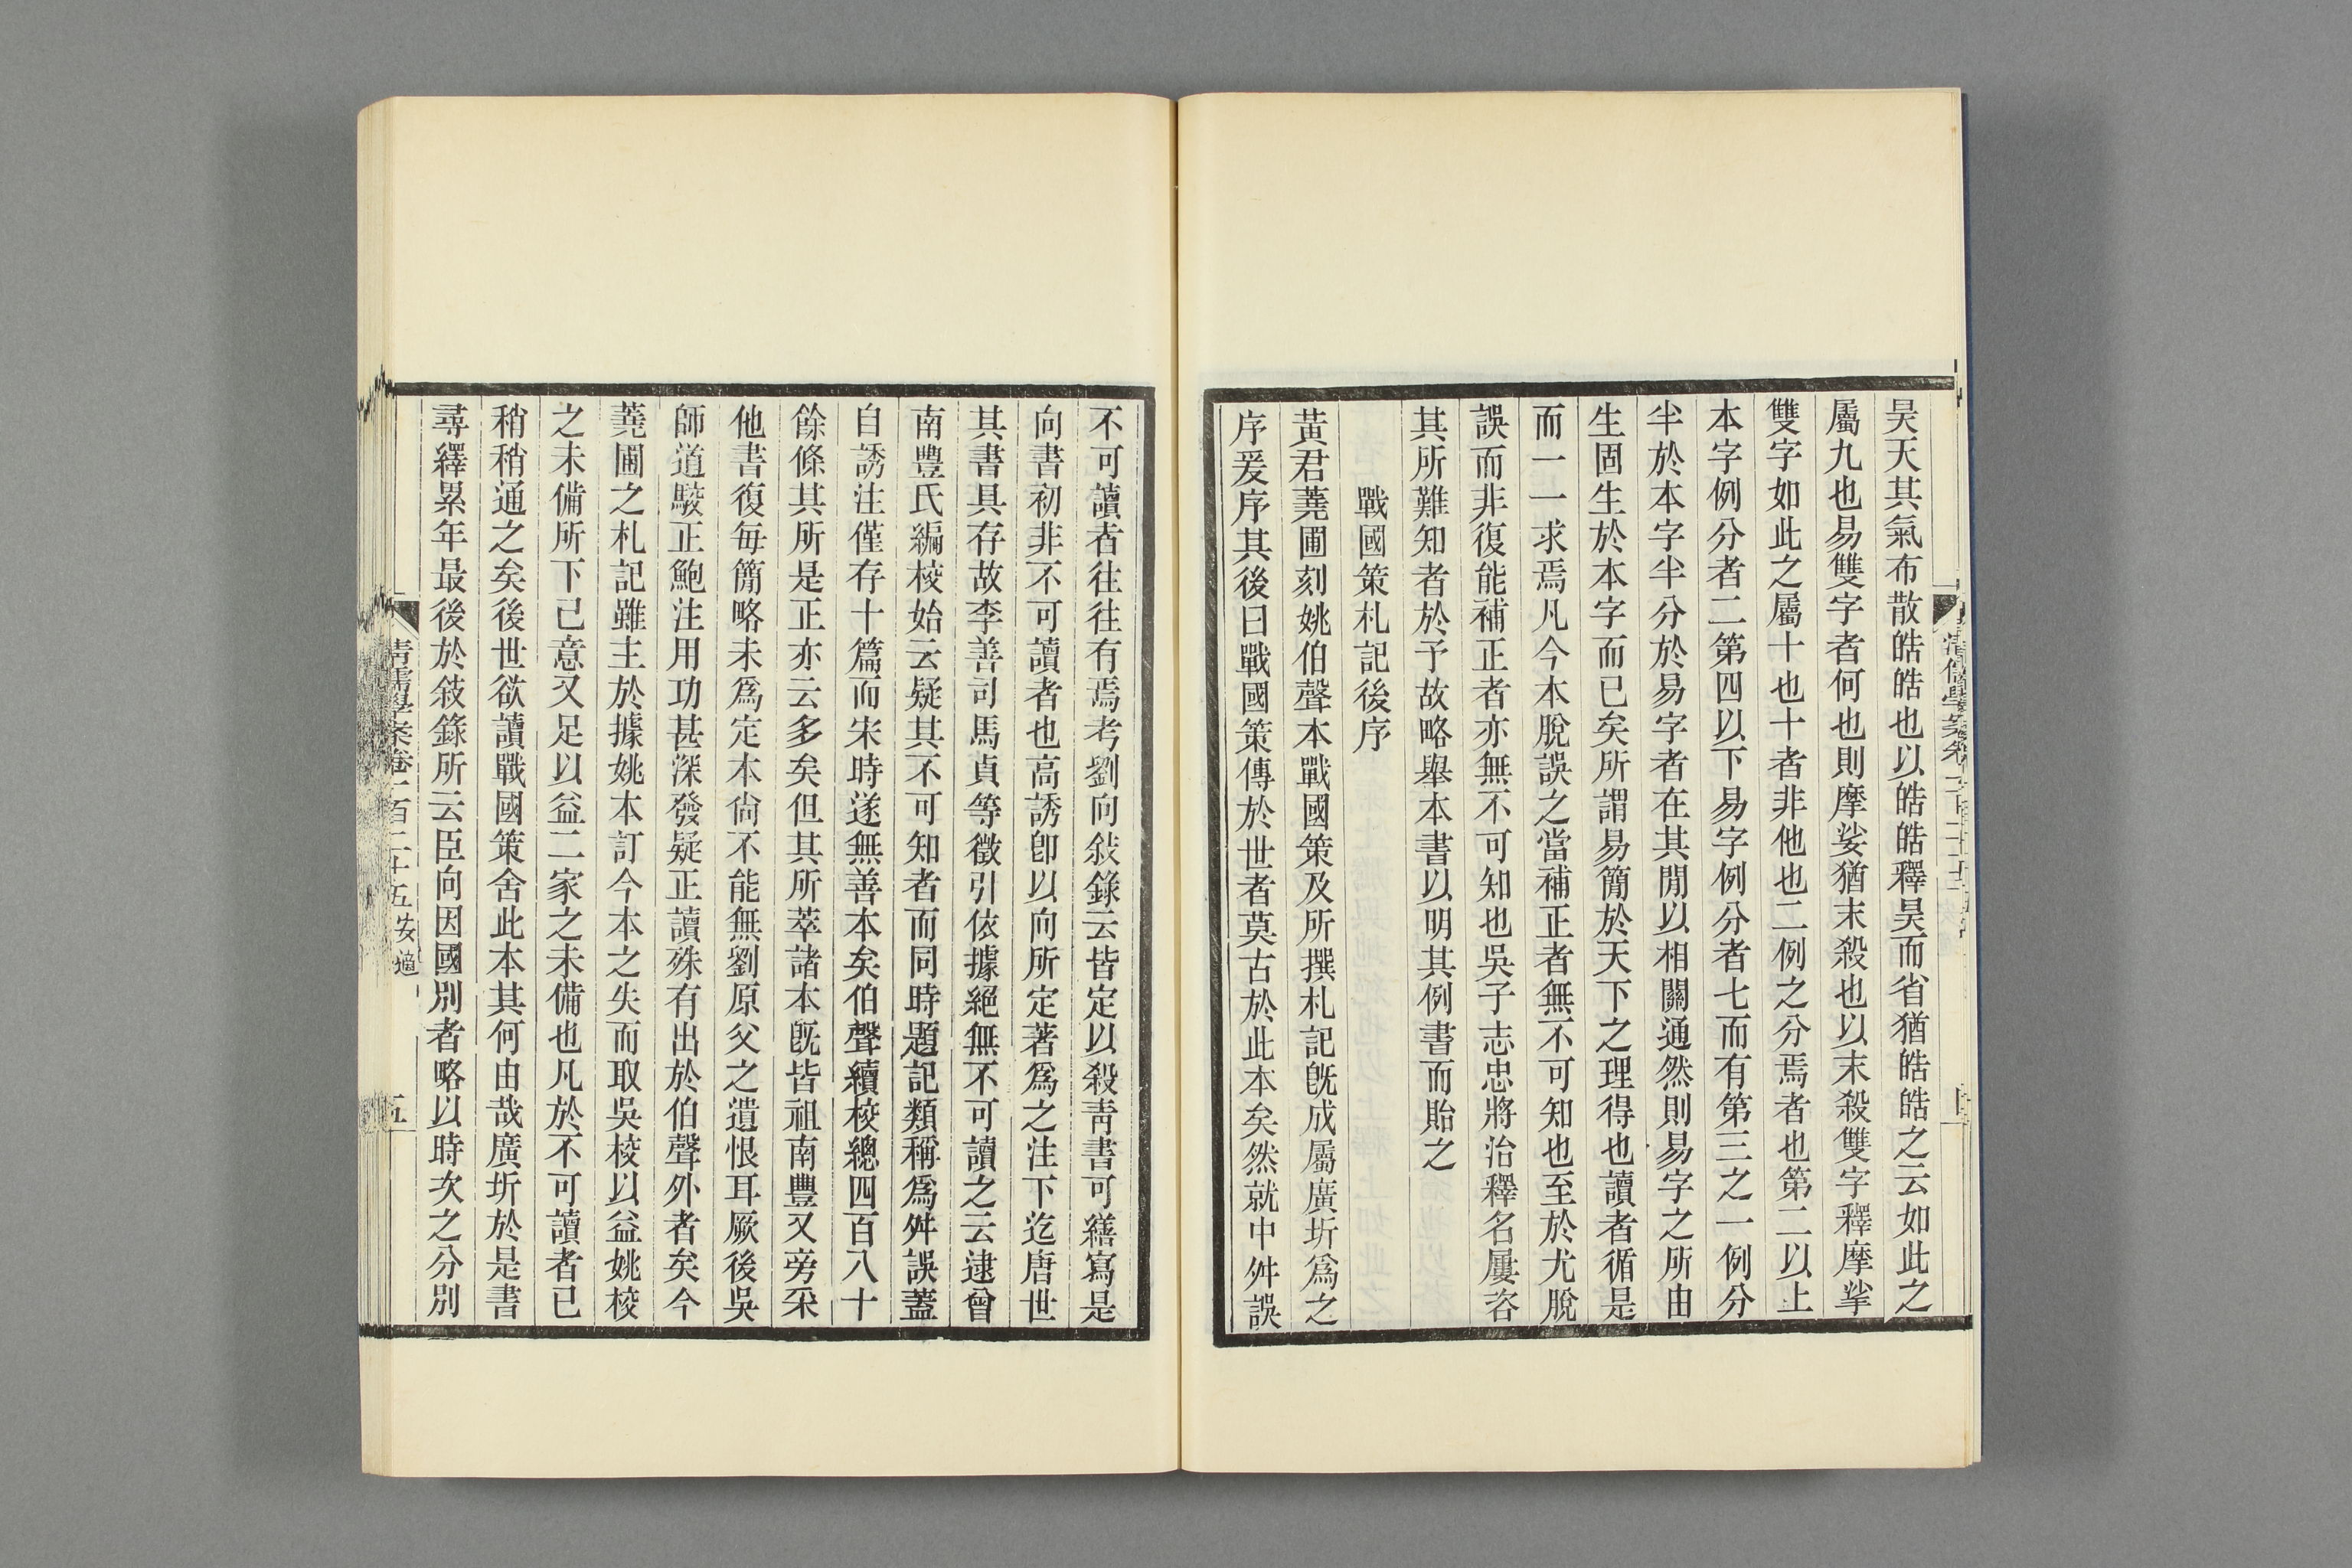 昊天其氣布散皓皓也以皓皓釋昊而省猶皓皓之云如此之
屬九也易雙字者何也則摩娑猶末殺也以末殺雙字釋摩挲
雙字如此之屬十也十者非他也二例之分焉者也第二以上
本字例分者二第四以下易字例分者七而有第三之一例分
半於本字半分於易字者在其閒以相關通然則易字之所由
生固生於本字而已矣所謂易簡於天下之理得也讀者循是
而一一求焉凡今本脫誤之當補正者無不可知也至於尤脫
誤而非復能補正者亦無不可知也吳子志忠將治釋名屢咨
其所難知者於予故略舉本書以明其例書而貽之
戰國策札記後序
黃君蕘圃刻姚伯聲本戰國策及所撰札記旣成屬廣圻爲之
序爰序其後曰戰國策傳於世者莫古於此本矣然就中舛誤
不可讀者往往有焉考劉向敍錄云皆定以殺靑書可繕寫是
向書初非不可讀者也高誘卽以向所定著爲之注下迄唐世
其書具存故李善司馬貞等徵引依據絕無不可讀之云逮曾
南豐氏編校始云疑其不可知者而同時題記類稱爲舛誤蓋
自誘注僅存十篇而宋時遂無善本矣伯聲續校總四百八十
餘條其所是正亦云多矣但其所萃諸本旣皆祖南豐又旁采
他書復每簡略未爲定本尙不能無劉原父之遺恨耳厥後吳
師道駿正鮑注用功甚深發疑正讀殊有出於伯聲外者矣今
蕘圃之札記雖主於據姚本訂今本之失而取吳校以益姚校
之未備所下己意又足以益二家之未備也凡於不可讀者已
稍稍通之矣後世欲讀戰國策舍此本其何由哉廣圻於是書
尋繹累年最後於敍錄所云臣向因國別者略以時次之分別
清儒學案卷一百二十五 安道
五